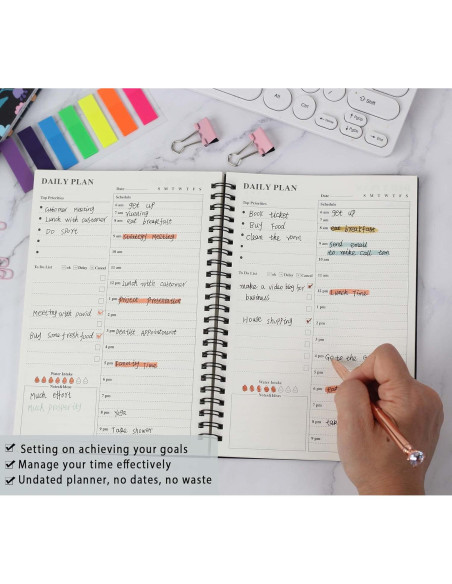 Ctrl
Alt
Shift
Fn
PgUp
DAILY PLAN
Date
S M T W T F S
Top Priorities
Schedule
customer meeting
Lunch with customer
Do sport
6 am get up
7 am running
8 am eat breakfast
9 am customer Meeting
10 am
11 am
To Do List
ok
Delay
Cancel
12 pm Lunch with customer
1 pm Project Presentation
2 pm
Meeting with david
3 pm Dentist Appointment
4 pm
Buy some fresh food
5 pm Family Time
6 pm
Water Intake
7 pm
Notes&Ideas
Much effort
Much prosperity
8 pm Yoga
9 pm Take shower
DAILY PLAN
Date
S M T W T F S
Top Priorities
Schedule
Book ticket
Buy Food
Clean the room
6 am get up
7 am
8 am eat breakfast
9 am send email
to make call
10 am
11 am
To Do List
ok
Delay
Cancel
make a video blog for
business
12 pm
1 pm Lunch Time
2 pm
House shopping
3 pm
4 pm Go to the
5 pm
Water Intake
Notes&Ideas
6 pm
7 pm
8 pm
9 pm
Setting on achieving your goals
Manage your time effectively
Undated planner, no dates, no waste